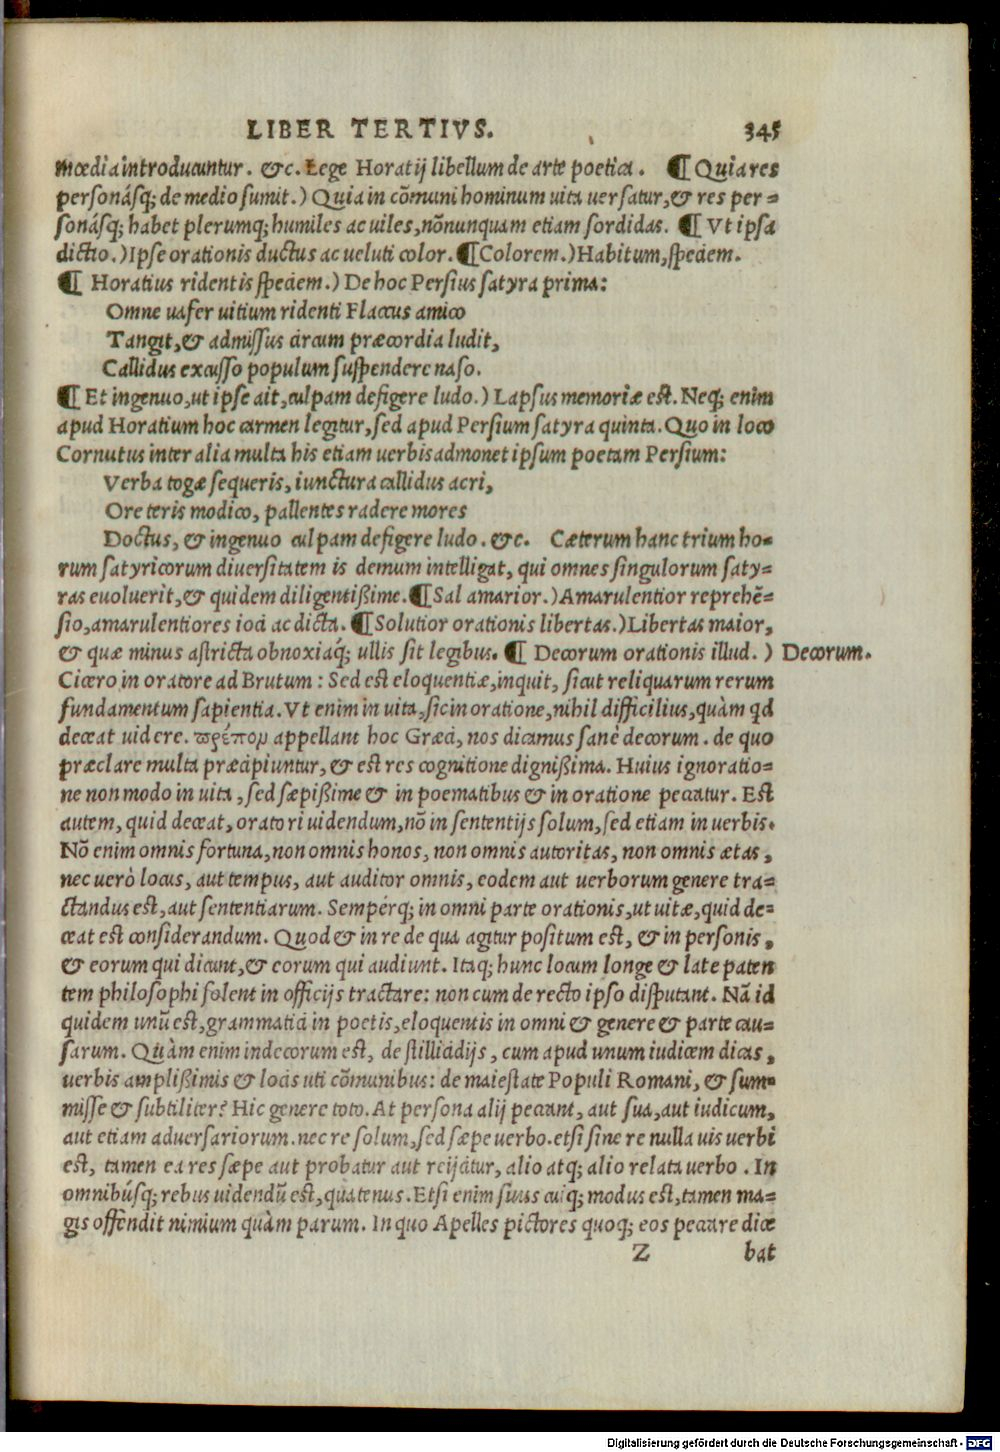 LIBER TERTIVS. 345
mœdia introducuntur. &c. Lege Horatij libellum de arte poetica. ¶ Quia res
personásq; de medio sumit.) Quia in cõmuni hominum uita uersatur, & res per-
sonásq; habet plerumq; humiles ac uiles, nõnunquam etiam sordidas. ¶ Vt ipsa
dictio.) Ipse orationis ductus ac ueluti color. ¶ Colorem.) Habitum, speciem.
¶ Horatius ridentis speciem.) De hoc Persius satyra prima:
Omne uafer uitium ridenti Flaccus amico
Tangit, & admissus circum præcordia ludit,
Callidus excusso populum suspendere naso.
¶ Et ingenuo, ut ipse ait, culpam defigere ludo.) Lapsus memoriæ est. Neq; enim
apud Horatium hoc carmen legitur, sed apud Persium satyra quinta. Quo in loco
Cornutus inter alia multa his etiam uerbis admonet ipsum poetam Persium:
Verba togæ sequeris, iunctura callidus acri,
Ore teris modico, pallentes radere mores
Doctus, & ingenuo culpam defigere ludo. &c. Cæterum hanc trium ho-
rum satyricorum diuersitatem is demum intelligat, qui omnes singulorum saty-
ras euoluerit, & quidem diligentißime. ¶ Sal amarior.) Amarulentior reprehẽ-
sio, amarulentiores ioci ac dicta. ¶ Solutior orationis libertas.) Libertas maior,
& quæ minus astricta obnoxiaq́; ullis sit legibus. ¶ Decorum orationis illud.) Decorum.
Cicero in oratore ad Brutum: Sed est eloquentiæ, inquit, sicut reliquarum rerum
fundamentum sapientia. Vt enim in uita, sic in oratione, nihil difficilius, quàm qd
deceat uidere. πρέπον appellant hoc Græci, nos dicamus sanè decorum. de quo
præclare multa præcipiuntur, & est res cognitione dignißima. Huius ignoratio-
ne non modo in uita, sed sæpißime & in poematibus & in oratione peccatur. Est
autem, quid deceat, oratori uidendum, nõ in sententijs solum, sed etiam in uerbis.
Nõ enim omnis fortuna, non omnis honos, non omnis autoritas, non omnis ætas,
nec uerò locus, aut tempus, aut auditor omnis, eodem aut uerborum genere tra-
ctandus est, aut sententiarum. Sempérq; in omni parte orationis, ut uitæ, quid de-
ceat est considerandum. Quod & in re de qua agitur positum est, & in personis,
& eorum qui dicunt, & eorum qui audiunt. Itaq; hunc locum longe & late paten
tem philosophi solent in officijs tractare: non cum de recto ipso disputant. Nã id
quidem unũ est, grammatici in poetis, eloquentis in omni & genere & parte cau-
sarum. Quàm enim indecorum est, de stillicidijs, cum apud unum iudicem dicas,
uerbis amplißimis & locis uti cõmunibus: de maiestate Populi Romani, & sum-
misse & subtiliter? Hic genere toto. At persona alij peccant, aut sua, aut iudicum,
aut etiam aduersariorum. nec re solum, sed sæpe uerbo. etsi sine re nulla uis uerbi
est, tamen ea res sæpe aut probatur aut reijcitur, alio atq; alio relata uerbo. In
omnibúsq; rebus uidendũ est, quatenus. Etsi enim suus cuiq; modus est, tamen ma-
gis offendit nimium quàm parum. In quo Apelles pictores quoq; eos peccare dice
Z bat
Digitalisierung gefördert durch die Deutsche Forschungsgemeinschaft - DFG